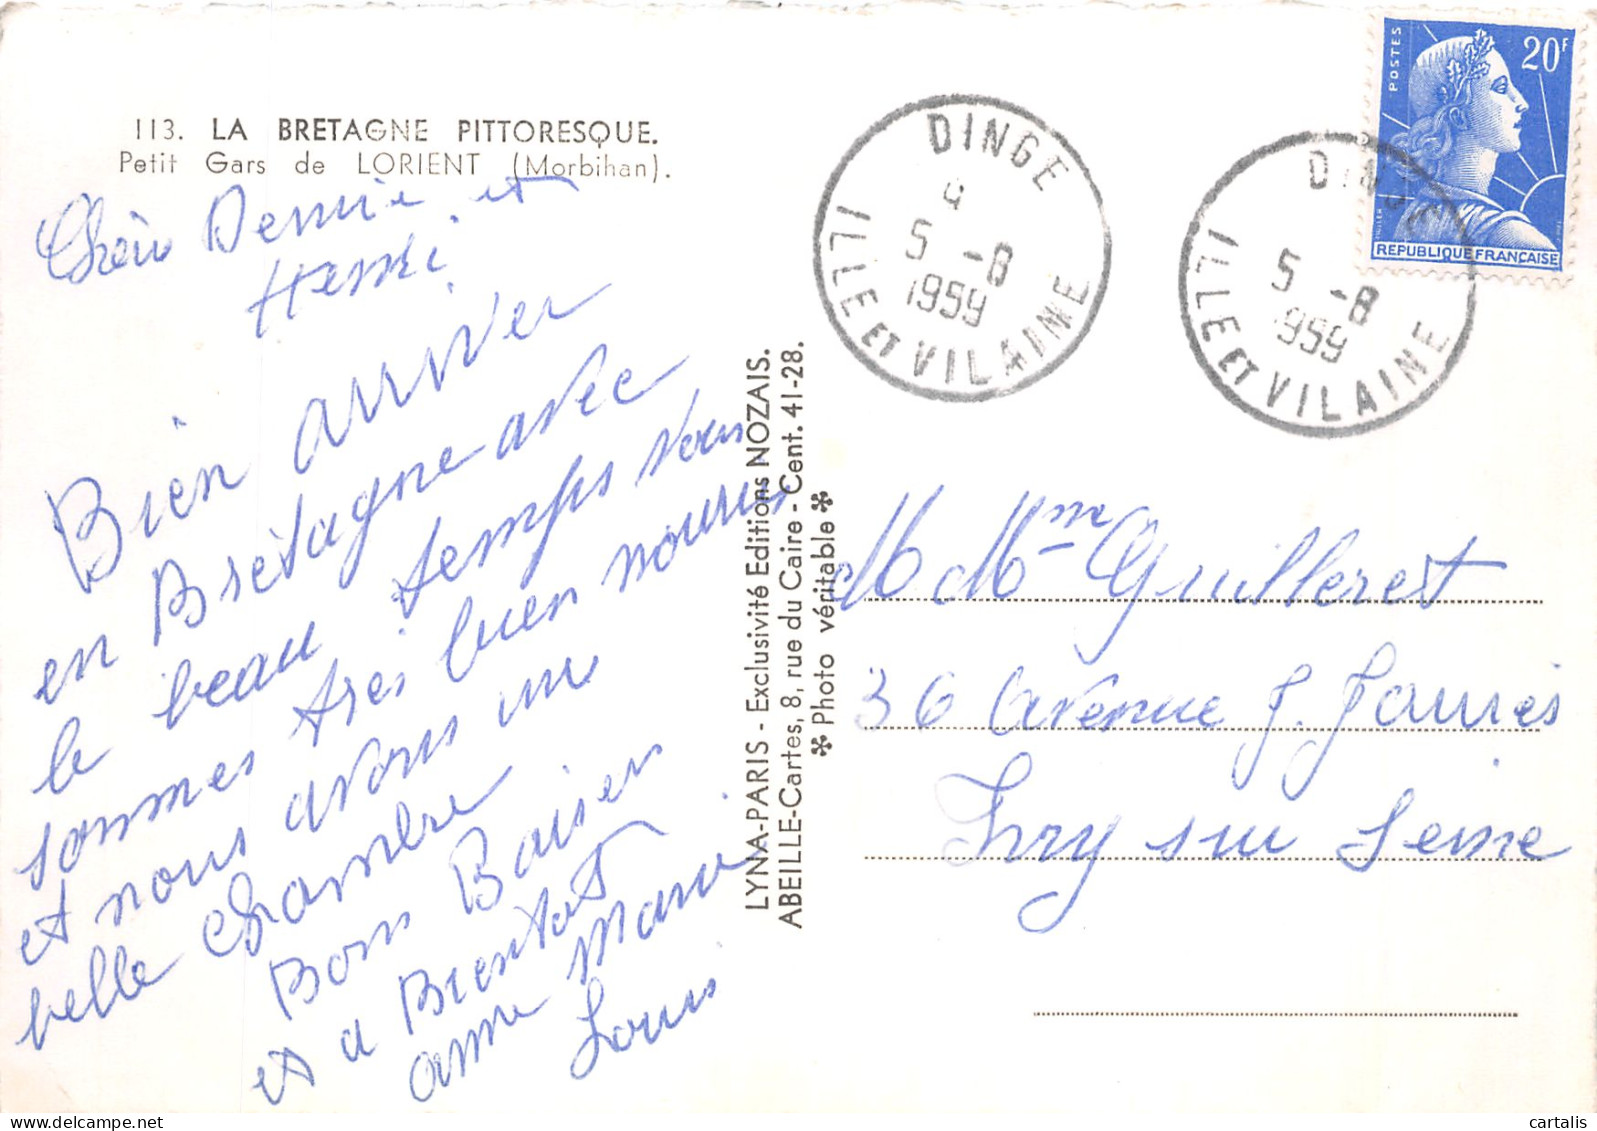 113. LA BRETAGNE PITTORESQUE.
Petit Gars de LORIENT (Morbihan).
Denise et
Henri
Bien arriver
en Bretagne avec
le beau temps vous
sommes très bien nourris
et nous avons une
belle chambre
Bons Baiser
et a Bientot
anne Marie
Louis
LYNA-PARIS - Exclusivité Editions NOZAIS.
ABEILLE-Cartes, 8, rue du Caire - Cent. 41-28.
✻ Photo véritable ✻
DINGE
4
5 -8
1959
ILLE ET VILAINE
DINGE
5 -8
1959
ILLE ET VILAINE
POSTES
20F
MULLER
REPUBLIQUE FRANÇAISE
M Mme Guilleret
36 avenue J. Jaurès
Ivry sur Seine
cartalis
delcampe.net